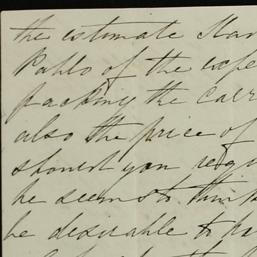 the estimate
Pablo of the expe
packing the
also the price of
should you requ
he seems to think
be desirable to